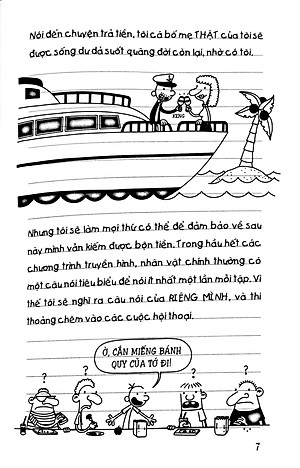 Nói đến chuyện trả tiền, tôi cá bố mẹ THẬT của tôi sẽ
được sống dư dả suốt quãng đời còn lại, nhờ có tôi.
KING
Nhưng tôi sẽ làm mọi thứ có thể để đảm bảo về sau
này mình vẫn kiếm được bộn tiền. Trong hầu hết các
chương trình truyền hình, nhân vật chính thường có
một câu nói tiêu biểu để nói ít nhất một lần mỗi tập. Vì
thế tôi sẽ nghĩ ra câu nói của RIÊNG MÌNH, và thi
thoảng chêm vào các cuộc hội thoại.
Ờ, CẮN MIẾNG BÁNH
QUY CỦA TỚ ĐI!
? ? ? ?
7